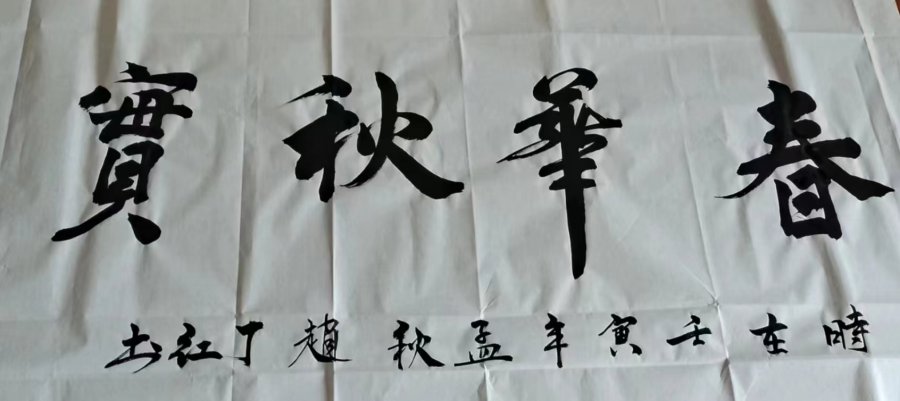 春華秋實
時在壬寅年孟秋趙丁红书